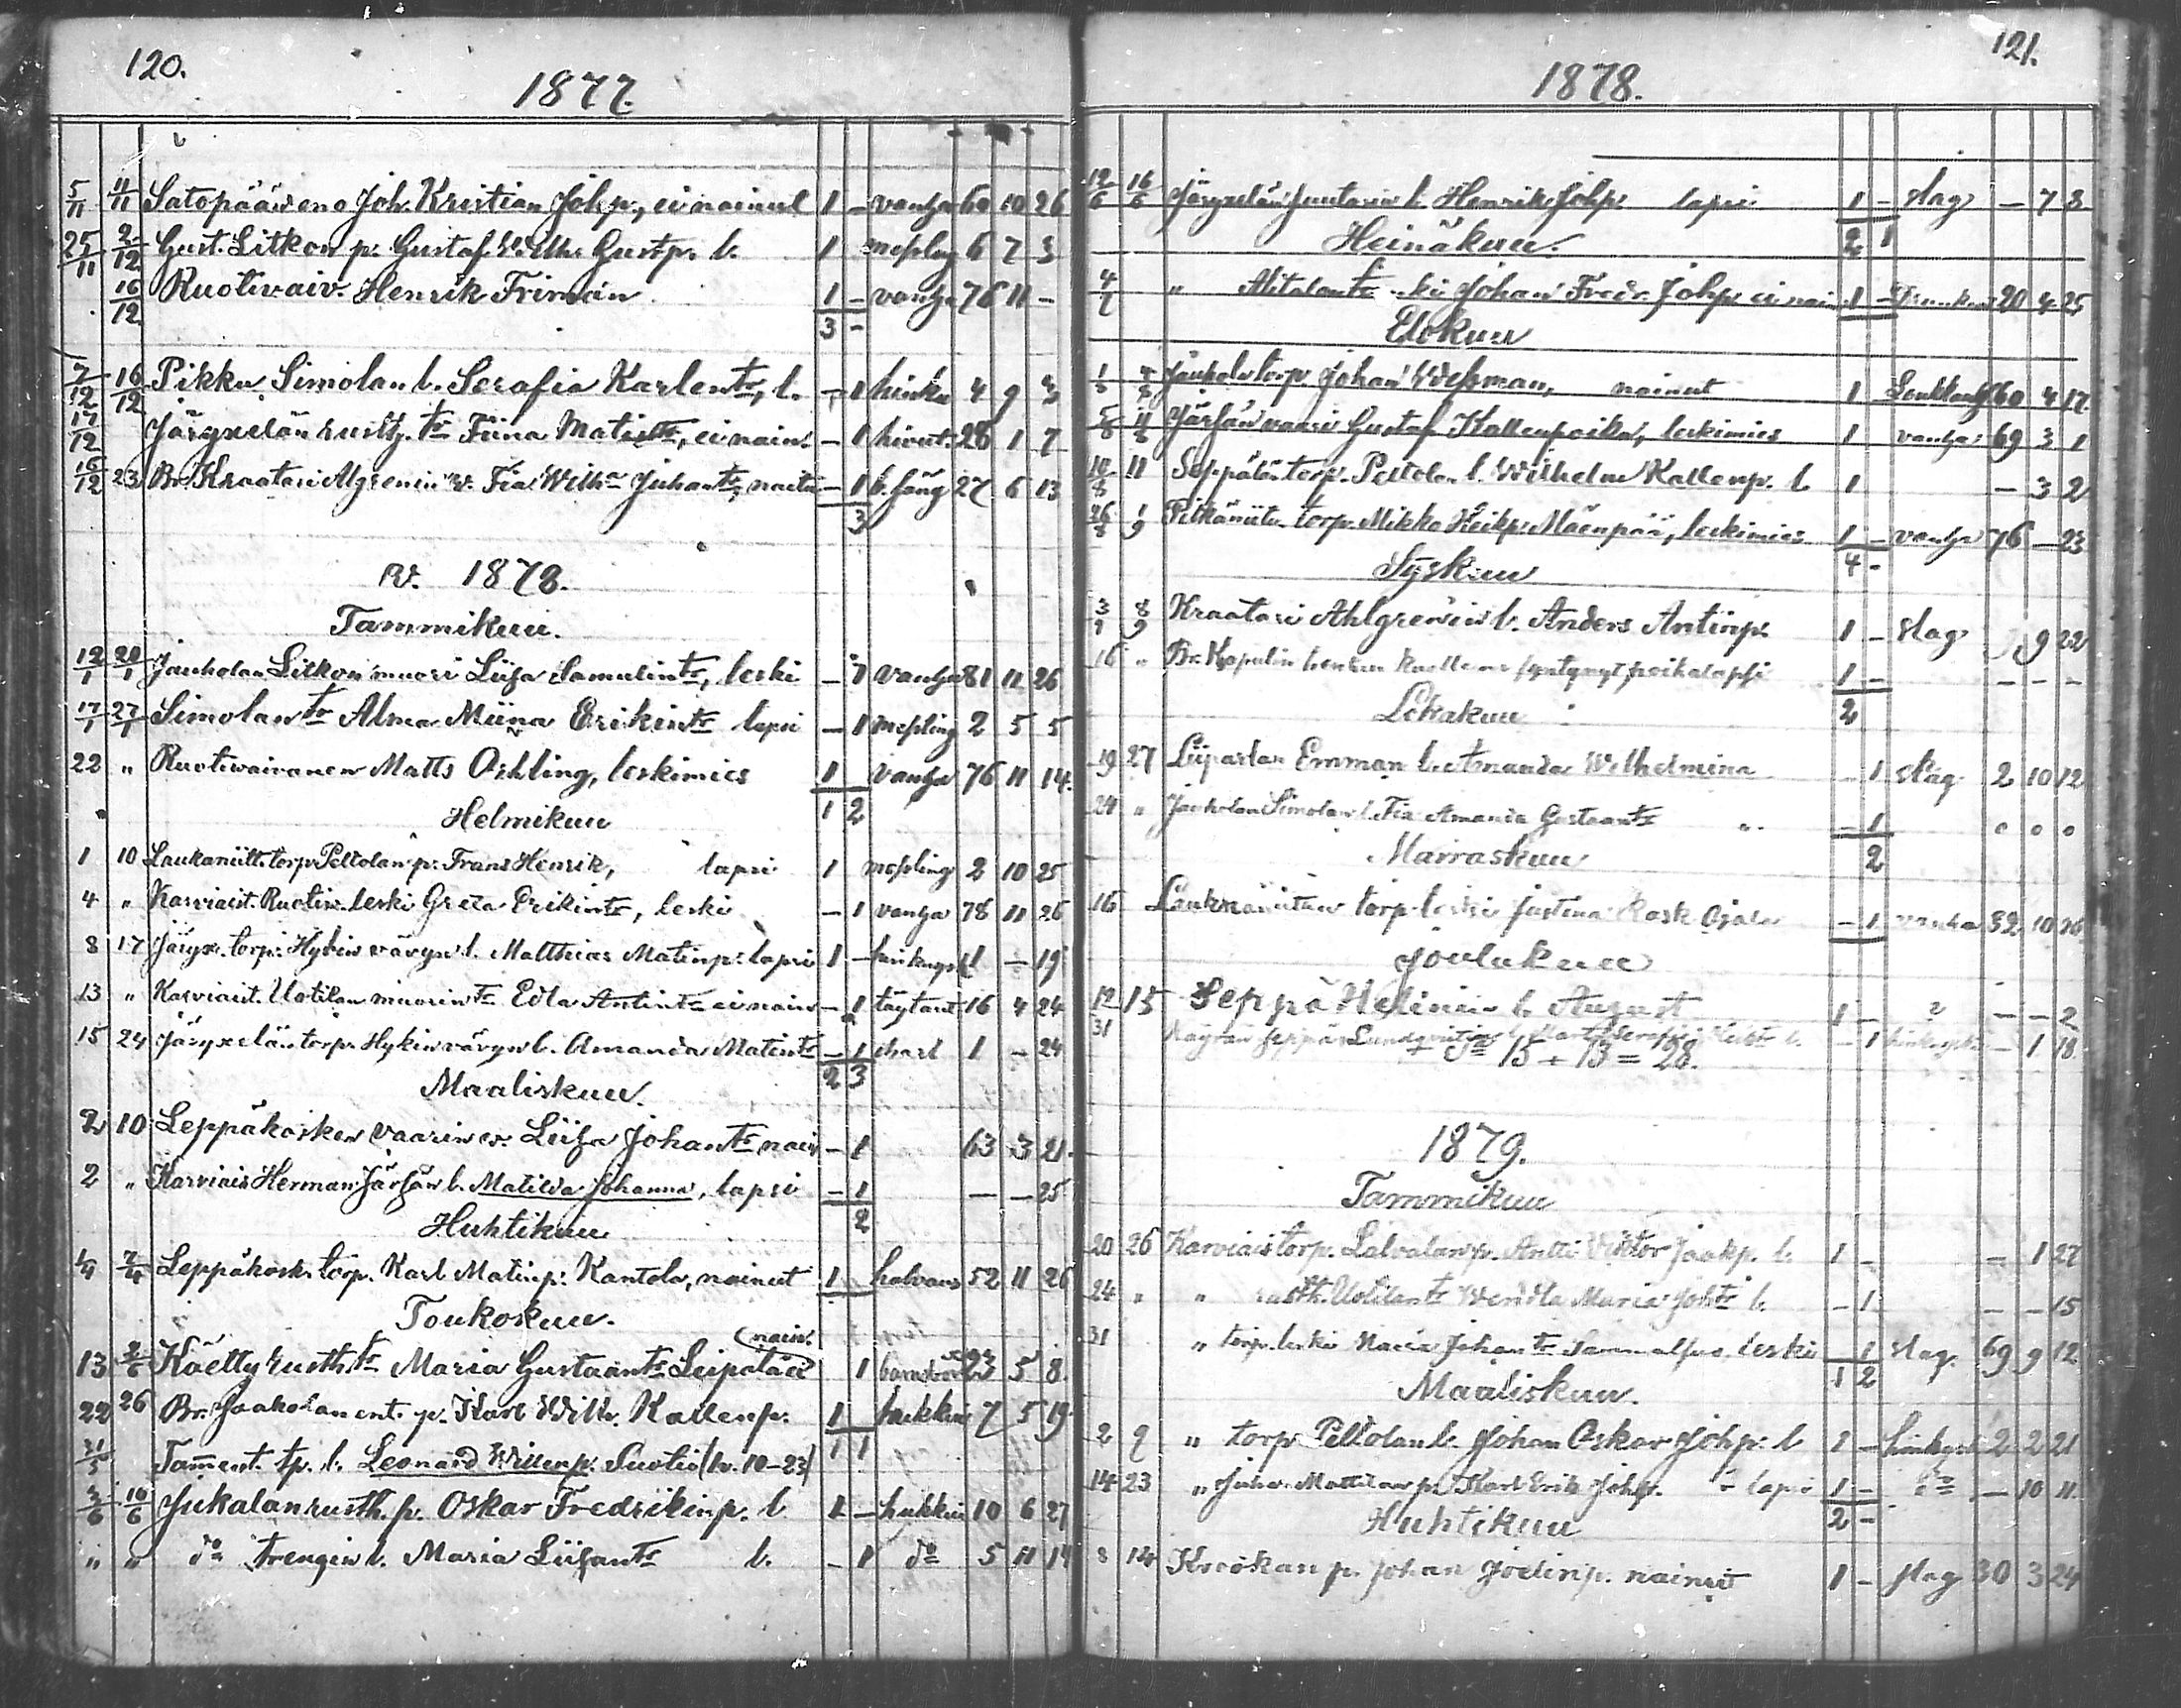 120.
1877.
5/11 11/11 Satopään eno Joh. Kristian Johp., ei nainut 1 – vanha 60 10 26
25/11 2/12 Gust. Litkon p. Gustaf Wilh. Gustp. l. 1 messling 6 7 3
16/12 Ruotivaiv. Henrik Friman 1 – vanha 76 11 –
3 –
7/12 16/12 Pikku Simolan l. Serafia Karlentr, l. – 1 hinku 4 9 3
17/12 Järyxelän rusth. tr Fiina Matintr, ei nain. – 1 28 1 7
16/12 23 Br. Kraatari Algrenin v. Fia Wilh:a Juhantr, naitu – 1 27 6 13
3
w. 1878.
Tammikuu.
12/1 20/1 Jauholan Litkon muori Liisa Samulintr, leski – 1 vanha 81 11 26
17/1 27/1 Simolan tr Alma Miina Erikintr lapsi – 1 messling 2 5 5
22 " Ruotivaivanen Matts Oehling, leskimies 1 vanha 76 11 14.
1 2
Helmikuu
1 10 Laukaniitt. torp. Peltolan p. Frans Henrik, lapsi 1 messling 2 10 25
4 " Karviaist. Ruotiv. leski Greta Erikintr, leski – 1 vanha 78 11 26
8 17 Järyx. torp. Hykin vävyn l. Matthias Matinp. lapsi 1 – 1 – 19
13 " Karviaist. Uotilan muorin tr Edla Antintr ei nain – 1 16 4 24
15 24 Järyxelän torp. Hykin vävyn l. Amanda Matintr – 1 1 – 24
2 3
Maaliskuu.
2 10 Leppäkosken vaarin v. Liisa Johantr nain – 1 63 3 21.
2 " Karviais Herman Järfän l. Matilda Johanna, lapsi – 1 – – 25
2
Huhtikuu
1/4 7/4 Leppäkosk. torp. Karl Matinp. Kantola, nainut 1 halvaus 52 11 26
Toukokuu.
(nain.
13 2/6 Käetty rusth. tr Maria Gustaantr Leipälää 1 23 5 8.
22 26 Br. Jaakolan ent. p. Karl Wilh. Kallenp. 1 hukkui 7 5 19
1 1
31/5 Tamment. tp. l. Leonard Willenp. Suotio (k. 10–23)
2/6 10/6 Jukalan rusth. p. Oskar Fredrikinp. l 1 – hukkui 10 6 27
" " do trengin l. Maria Liisantr l. – 1 do 5 11 14
121.
1878.
12/6 16/6 Järyxelän Juutarin l. Henrik Johp. lapsi 1 – slag – 7 3
2 1
Heinäkuu.
4/7 " Alitalon Johan Fredr. Johp. ei nain 1 – 20 4 25
Elokuu
1/8 4/8 Jauholan torp. Johan Wessman, nainut 1 60 4 17.
5/8 11/8 Järfän vaari Gustaf Kallenpoika, leskimies 1 vanha 69 3 1
10/8 11 Seppälän torp. Peltolan l. Wilhelm Kallenp. l 1 – 3 2
26/8 1/9 Pitkäniitu torp. Mikko Heikp. Mäenpää, leskimies 1 – vanha 76 – 23
4 –
Syskuu
3/9 8/9 Kraatari Ahlgrenin l. Anders Antinp. 1 – slag 9 22
16 " Br. poikalapsi 1 – – – –
2
Lokakuu
19 27 Liiparlan Emman l. Amanda Wilhelmina – 1 slag. 2 10 12
24 " Jauholan Simolan l. Fia Amanda Gustaantr " – 1 0 0 0
2
Marraskuu
16 torp. leski Justina Kask Ojala – 1 vanha 82 10 26
Joulukuu
12 15 Seppä Helinin l. August 1 – – – 2
31 – 1 – 1 18.
15 + 13 = 28.
1879.
Tammikuu
20 26 Karviais torp. Lalvalan p. Antti Viktor Jaakp. l. 1 – – 1 27
24 " " rusth. Uotilan tr Wendla Maria Johtr l. – 1 – – 15
31 " torp. leski Maria Johantr leski – 1 slag. 69 9 12
1 2
Maaliskuu.
2 9 " torp. Peltolan l. Johan Oskar Johp. l 1 – 2 2 21
14 23 " Juho Mattilan p. Karl Erik Johp. lapsi 1 – do – 10 11.
2 –
Huhtikuu
8 14 Krookan p. Johan Joelinp. nainut 1 – slag 30 3 24